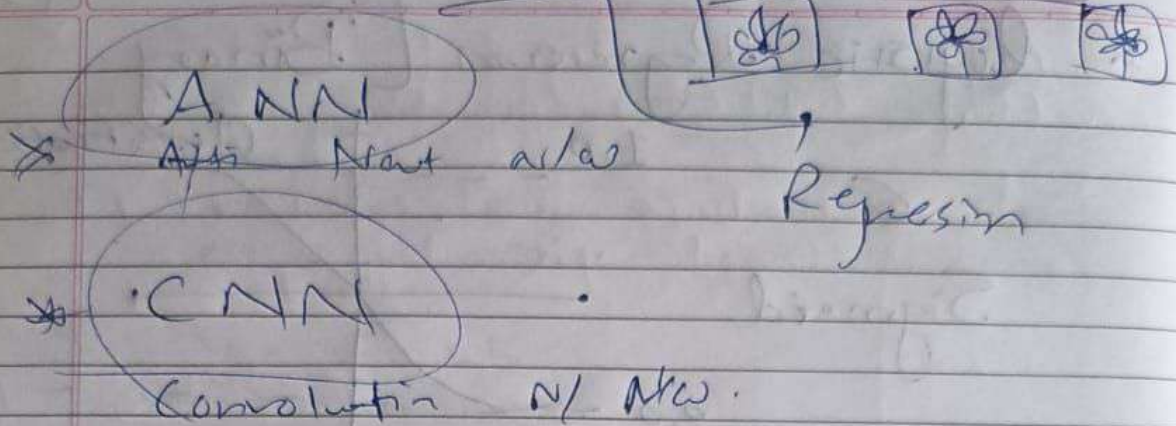 A.NN
Arti Neut n/w
Regression
CNN
Convolution N/ N/w.